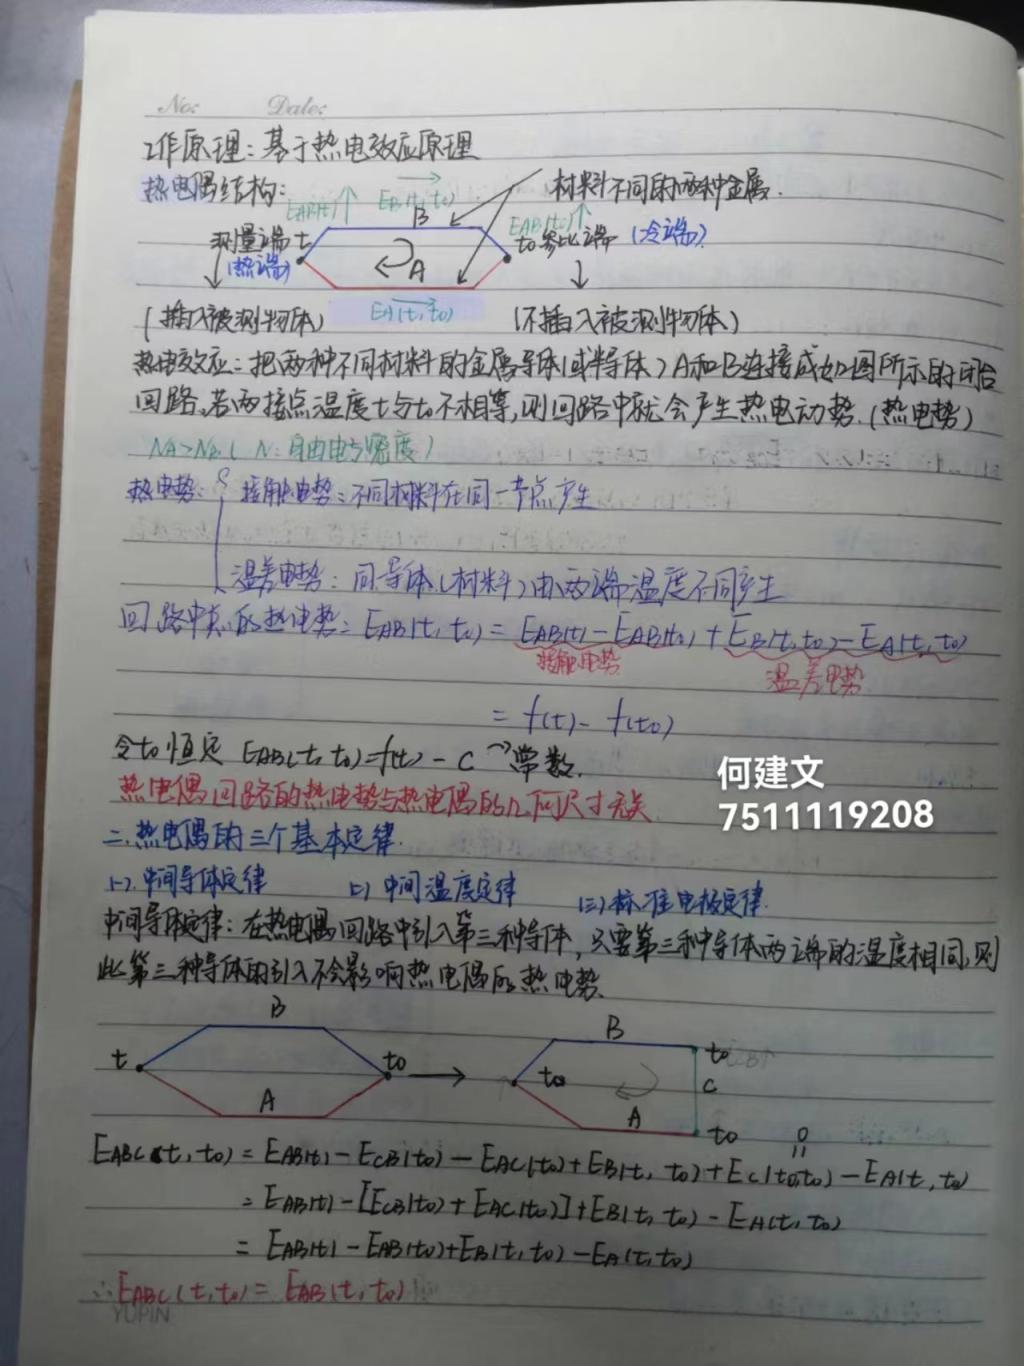 No: Date:
工作原理：基于热电效应原理
热电偶结构：
EAB(t)↑ EB(t,t0) 材料不同的两种金属.
B EAB(t0)↑
测量端 t t0 参比端 (冷端)
(热端) A
EA(t,t0)
(插入被测物体) (不插入被测物体)
热电效应：把两种不同材料的金属导体(或半导体)A和B连接成如图所示的闭合
回路,若两接点温度t与t0不相等,则回路中就会产生热电动势.(热电势)
NA>NB.( N:自由电子密度)
热电势: { 接触电势:不同材料在同一节点产生
温差电势: 同导体(材料)由两端温度不同产生
回路中总的热电势: EAB(t,t0) = EAB(t) - EAB(t0) + EB(t,t0) - EA(t,t0)
接触电势 温差电势
= f(t) - f(t0)
令t0恒定 EAB(t,t0)=f(t) - C → 常数.
何建文
7511119208
热电偶回路的热电势与热电偶的几何尺寸无关.
二.热电偶的三个基本定律.
(一).中间导体定律 (二) 中间温度定律 (三) 标准电极定律.
中间导体定律：在热电偶回路中引入第三种导体，只要第三种导体两端的温度相同,则
此第三种导体的引入不会影响热电偶的热电势.
B B
t t0 → t0 t0
C
A A t0
0
EABC(t,t0) = EAB(t) - ECB(t0) - EAC(t0) + EB(t,t0) + EC(t0,t0) - EA(t,t0)
= EAB(t) - [ECB(t0) + EAC(t0)] + EB(t,t0) - EA(t,t0)
= EAB(t) - EAB(t0) + EB(t,t0) - EA(t,t0)
∴EABC(t,t0) = EAB(t,t0)
YUPIN